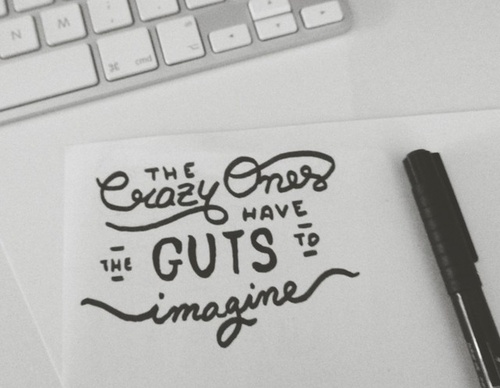 N M
⌘ cmd
THE
Crazy Ones
HAVE
THE GUTS TO
imagine